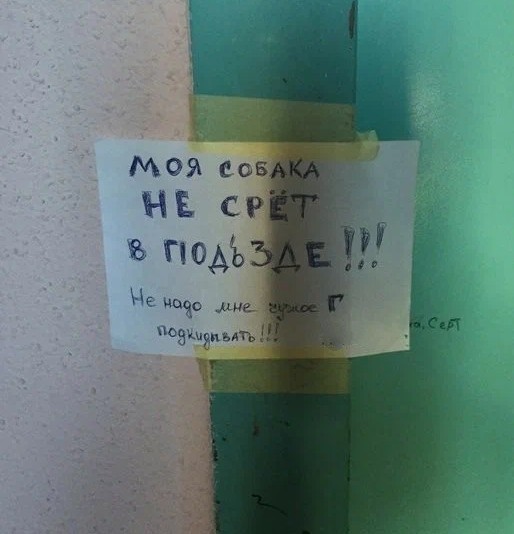 МОЯ СОБАКА
НЕ СРЁТ
В ПОДЬЗДЕ!!!
Не надо мне чужое Г
подкидывать!!!